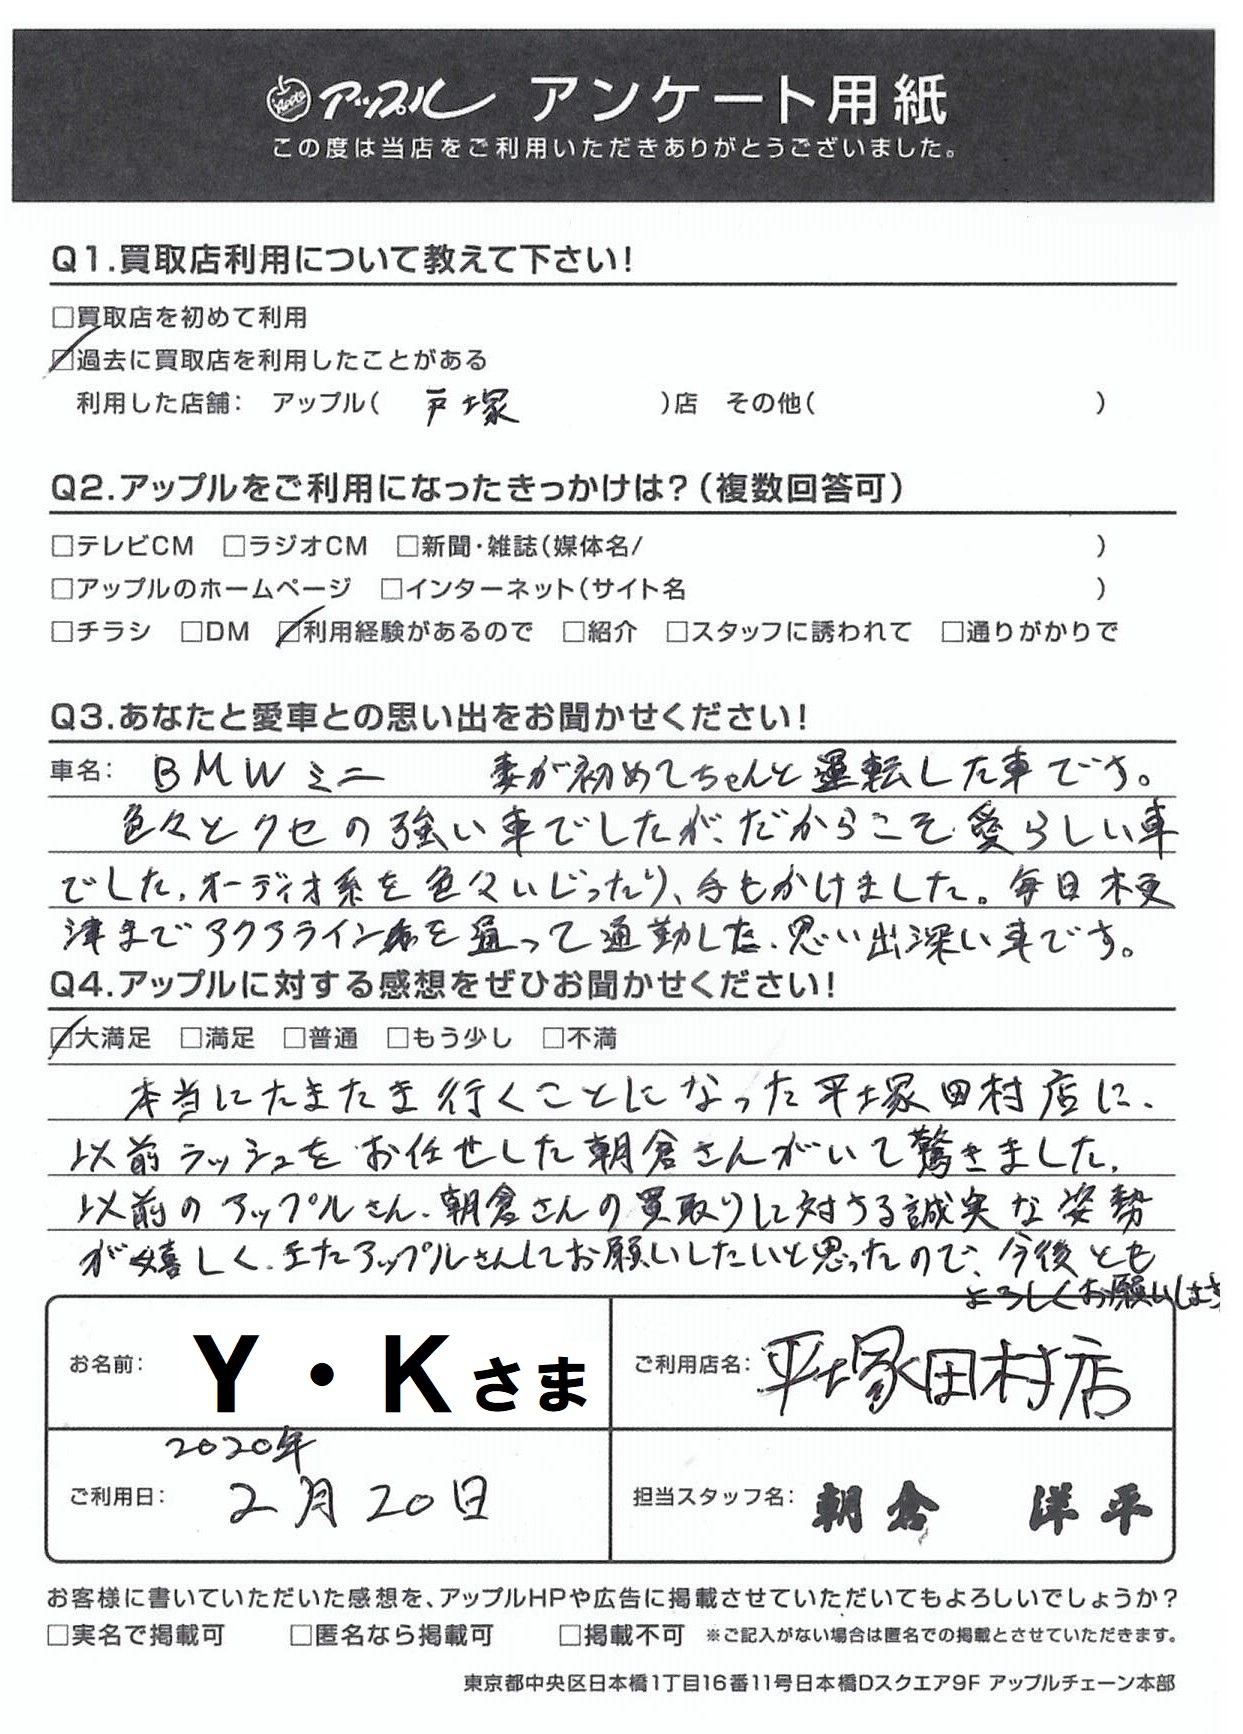 アップル アンケート用紙
この度は当店をご利用いただきありがとうございました。
Q1.買取店利用について教えて下さい!
□買取店を初めて利用
☑過去に買取店を利用したことがある
利用した店舗: アップル( 戸塚 )店 その他( )
Q2.アップルをご利用になったきっかけは?(複数回答可)
□テレビCM □ラジオCM □新聞・雑誌(媒体名/ )
□アップルのホームページ □インターネット(サイト名 )
□チラシ □DM ☑利用経験があるので □紹介 □スタッフに誘われて □通りがかりで
Q3.あなたと愛車との思い出をお聞かせください!
車名: BMWミニ 妻が初めてちゃんと運転した車です。
色々とクセの強い車でしたが、だからこそ愛らしい車
でした。オーディオ系を色々いじったり、手もかけました。毎日木更
津までアクアラインを通って通勤した、思い出深い車です。
Q4.アップルに対する感想をぜひお聞かせください!
☑大満足 □満足 □普通 □もう少し □不満
本当にたまたま行くことになった平塚田村店に、
以前ラッシュをお任せした朝倉さんがいて驚きました。
以前のアップルさん、朝倉さんの買取りに対する誠実な姿勢
が嬉しく、またアップルさんにてお願いしたいと思ったので、今後とも
よろしくお願いします
お名前: Y・Kさま
ご利用店名: 平塚田村店
ご利用日: 2020年 2月20日
担当スタッフ名: 朝倉 洋平
お客様に書いていただいた感想を、アップルHPや広告に掲載させていただいてもよろしいでしょうか?
□実名で掲載可 □匿名なら掲載可 □掲載不可 ※ご記入がない場合は匿名での掲載とさせていただきます。
東京都中央区日本橋1丁目16番11号日本橋Dスクエア9F アップルチェーン本部